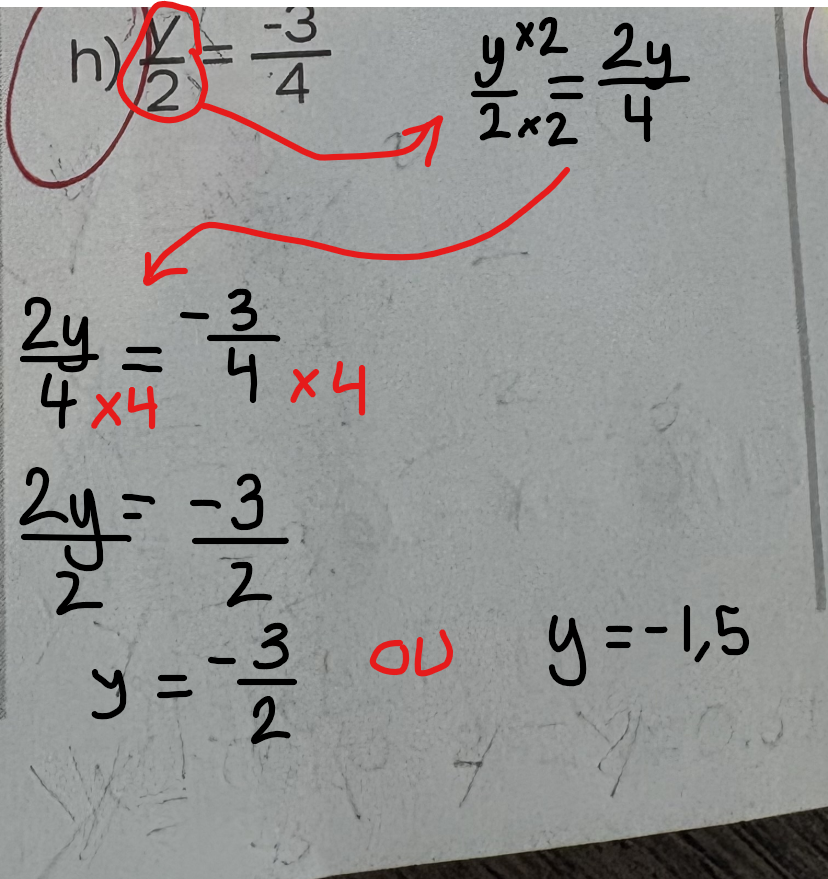 h) y/2 = -3/4
y×2/2×2 = 2y/4
2y/4 ×4 = -3/4 ×4
2y/2 = -3/2
y = -3/2 ou y = -1,5